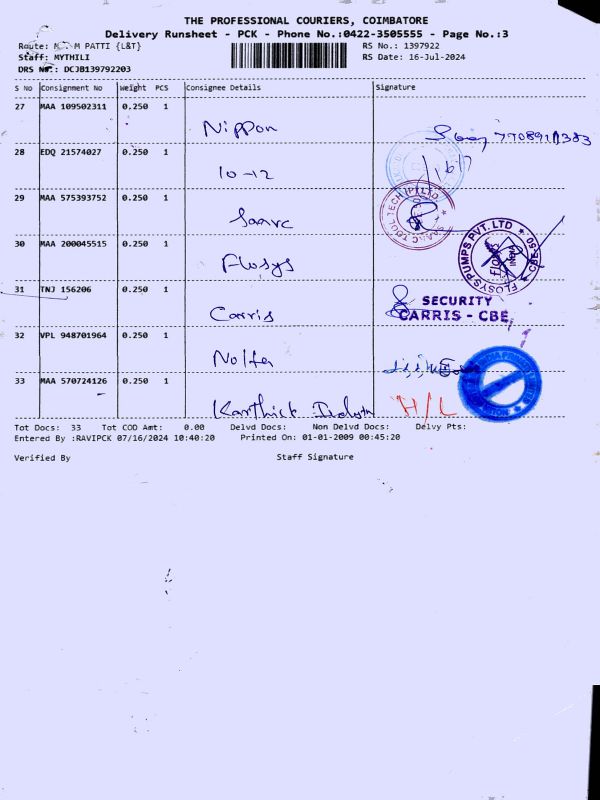 THE PROFESSIONAL COURIERS, COIMBATORE
Delivery Runsheet - PCK - Phone No.:0422-3505555 - Page No.:3
Route: M PATTI {L&T}
RS No.: 1397922
Staff: MYTHILI
RS Date: 16-Jul-2024
DRS No.: DCJB139792203
S No Consignment No Weight PCS Consignee Details Signature
27 MAA 109502311 0.250 1
Nippon
28 EDQ 21574027 0.250 1
10-12
29 MAA 575393752 0.250 1
Saarc
30 MAA 200045515 0.250 1
Flosys
FLOSYS PUMPS PVT. LTD
INDIA
31 TNJ 156206 0.250 1
Carris
SECURITY
CARRIS - CBE
32 VPL 948701964 0.250 1
Nolta
33 MAA 570724126 0.250 1
Karthick H/L
Tot Docs: 33 Tot COD Amt: 0.00 Delvd Docs: Non Delvd Docs: Delvy Pts:
Entered By :RAVIPCK 07/16/2024 10:40:20 Printed On: 01-01-2009 00:45:20
Verified By Staff Signature